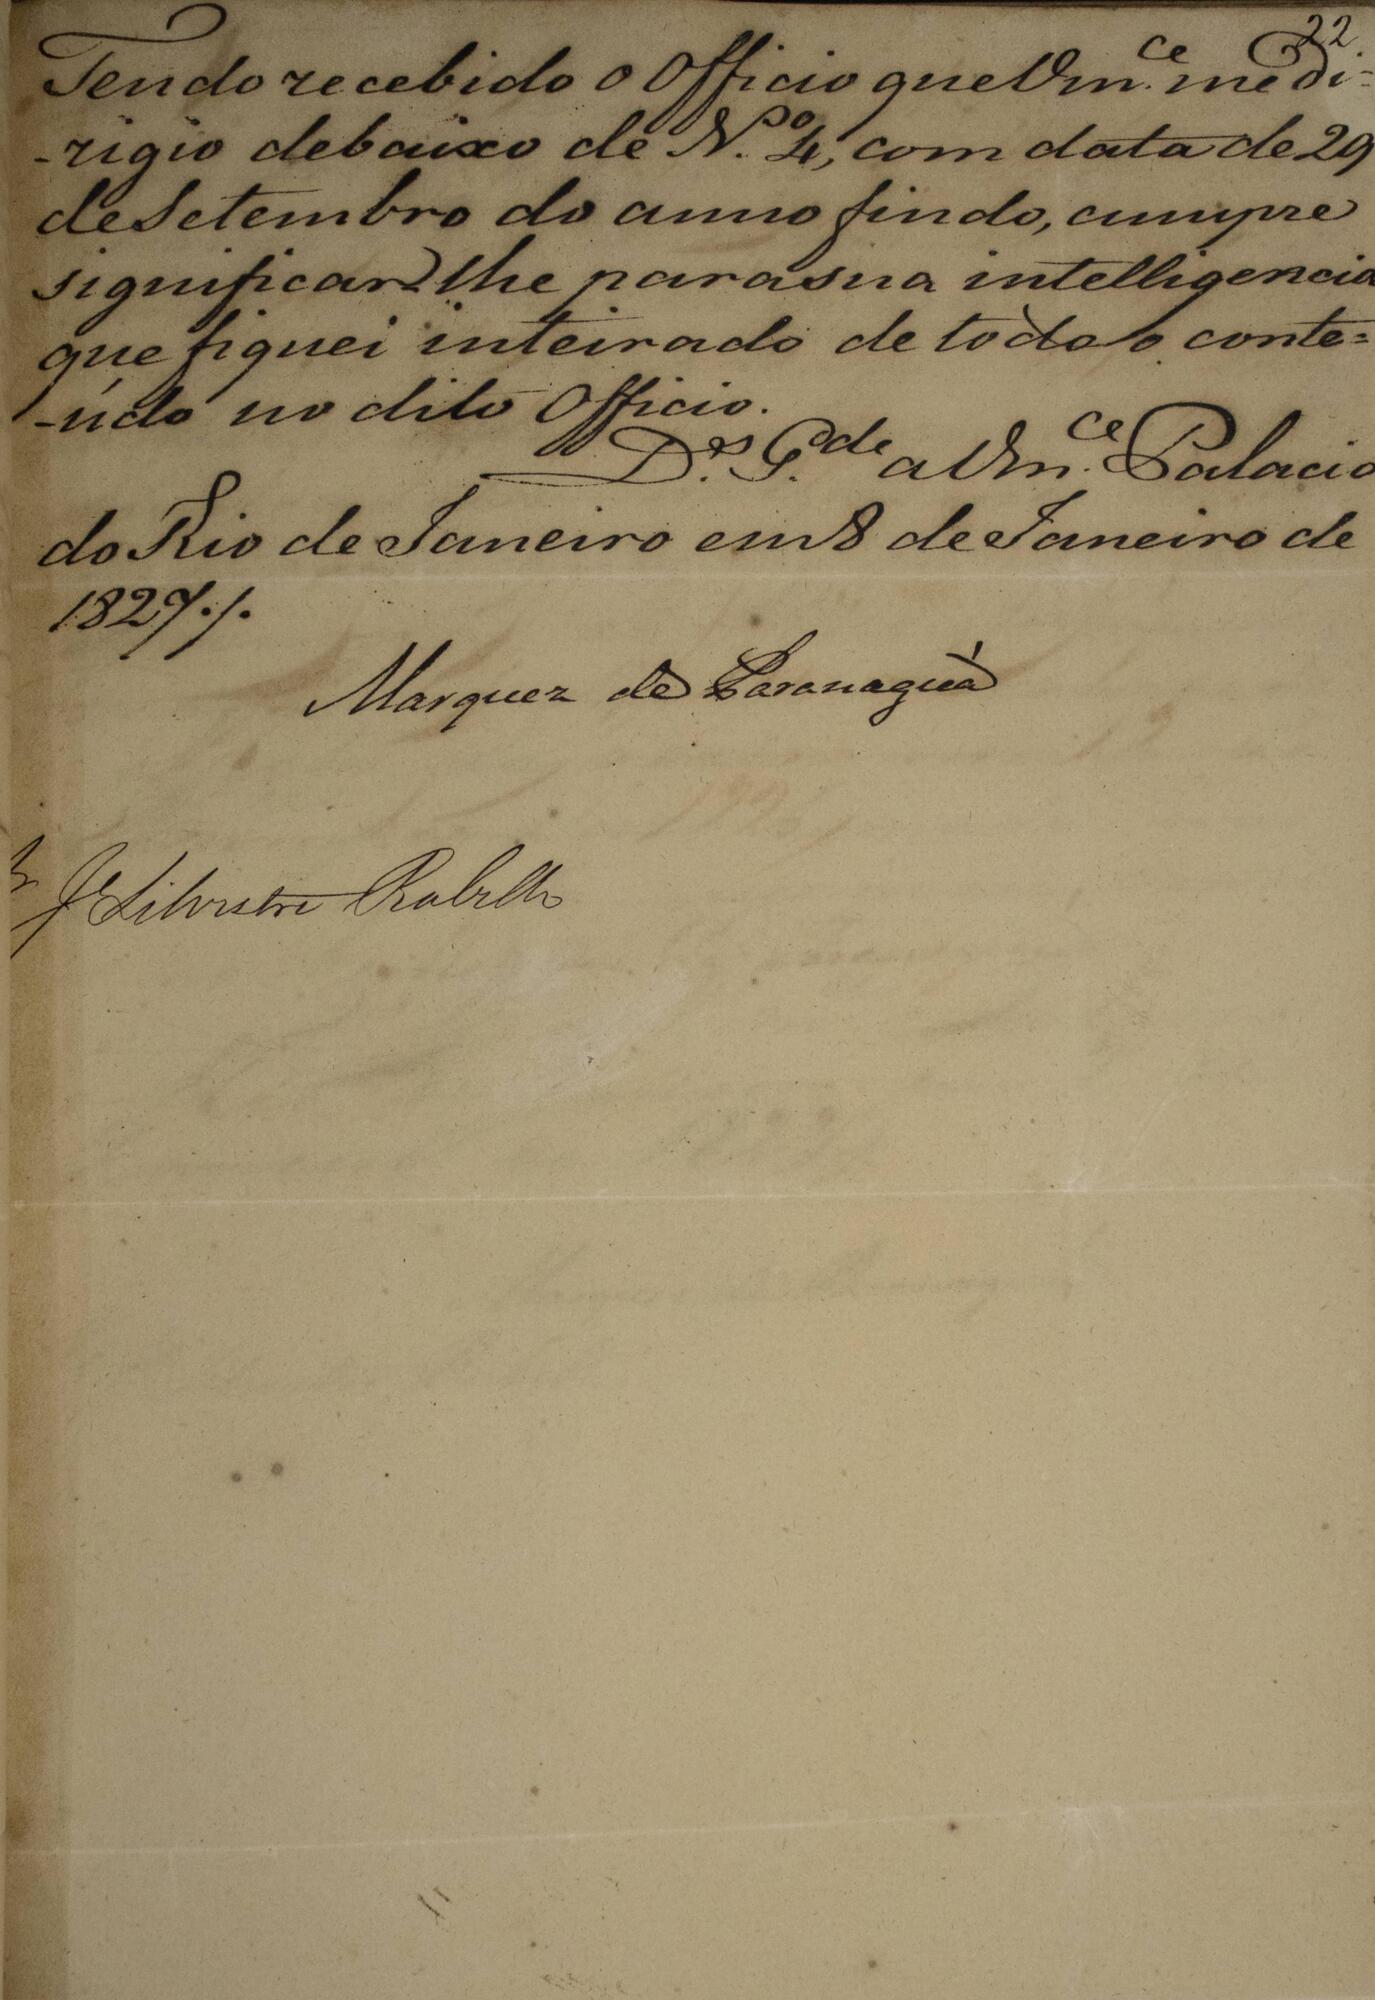 22
Tendo recebido o Officio que Vm.ce me di=
-rigio debaixo de N.º 4, com data de 29
de Setembro do anno findo, cumpre
significar lhe para sua intelligencia
que fiquei inteirado de todo o conte=
-údo no dito Officio.
D.s G.de a Vm.ce Palacio
do Rio de Janeiro em 8 de Janeiro de
1827./.
Marquez de Paranaguá
J.e Silvestre Rebello